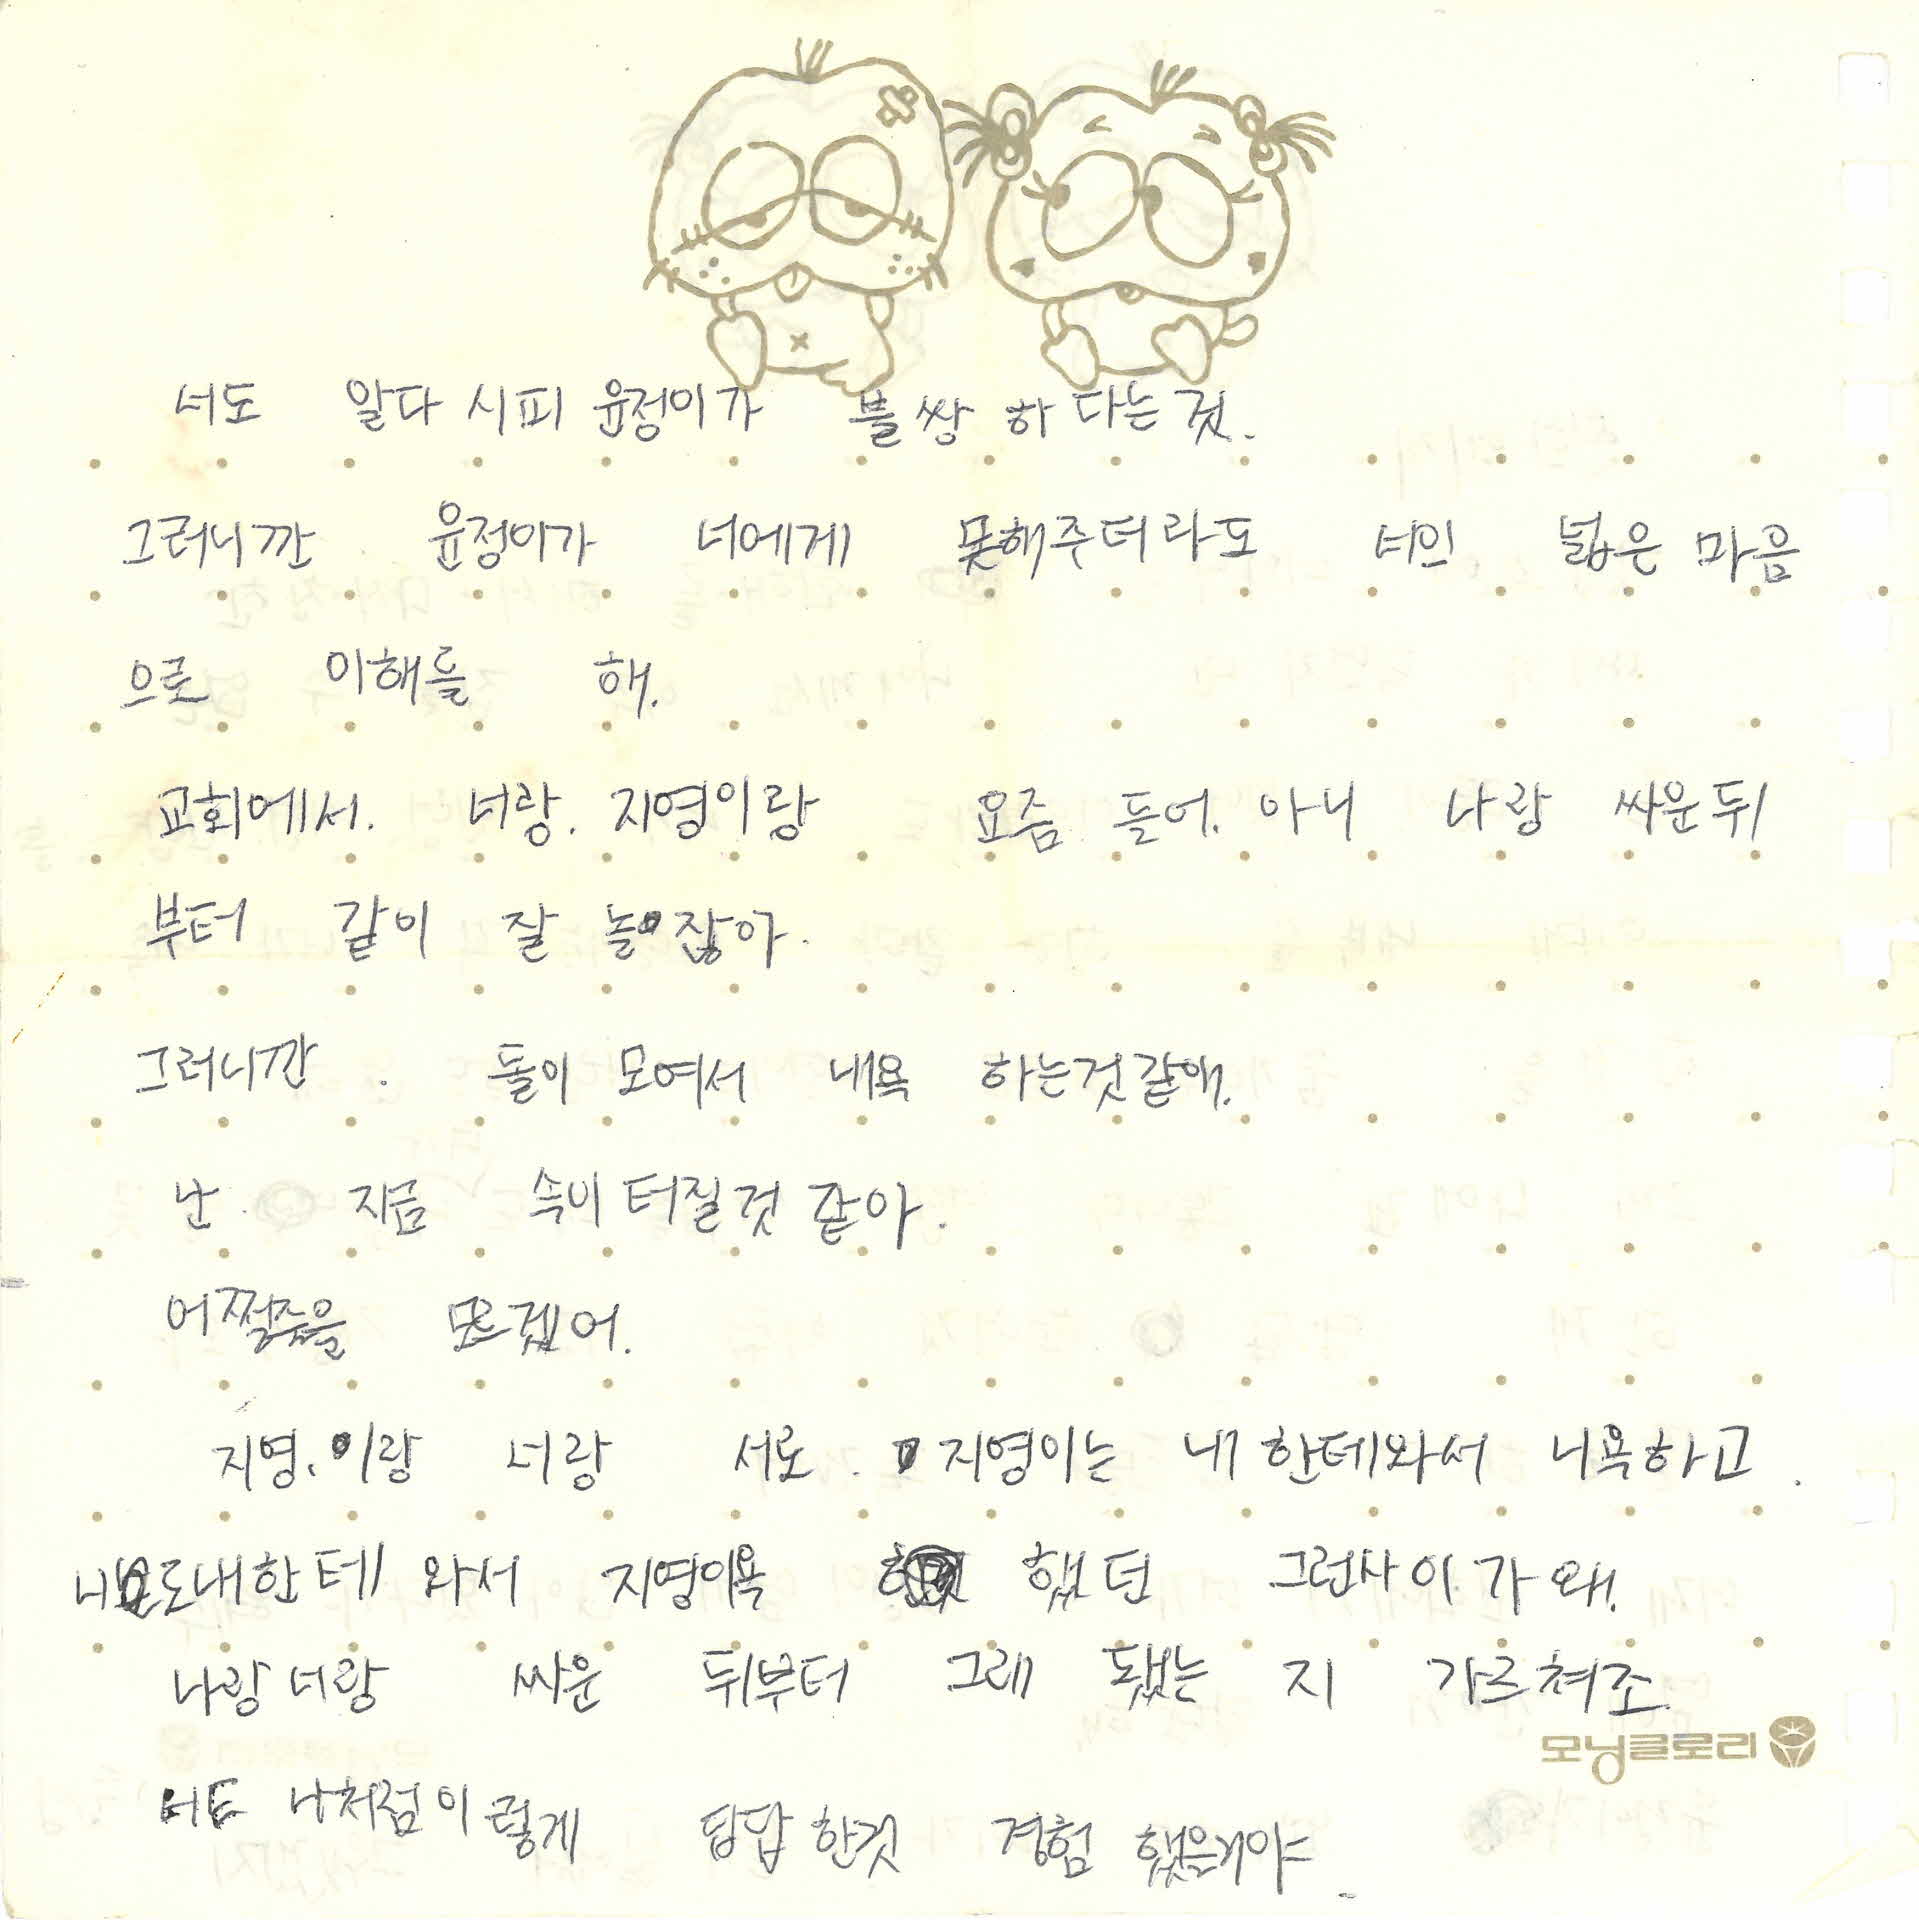 너도 알다 시피 윤정이가 불쌍 하 다는 것.
그러니깐 윤정이가 너에게 못해주더라도 너의 넓은 마음
으로 이해를 해.
교회에서. 너랑. 지영이랑 요즘 들어. 아니 나랑 싸운뒤
부터 같이 잘 놀잖아.
그러니깐. 둘이 모여서 내욕 하는것같애.
난. 지금 속이 터질것 같아.
어쩔줄을 모르겠어.
지영.이랑 너랑 서로. 지영이는 내한테와서 니욕하고.
너도내한테 와서 지영이욕 했던 그런사이가 왜.
나랑너랑 싸운 뒤부터 그래 됐는 지 가르쳐조.
모닝글로리
너도 나처럼이렇게 답답한것 경험 했을거야.